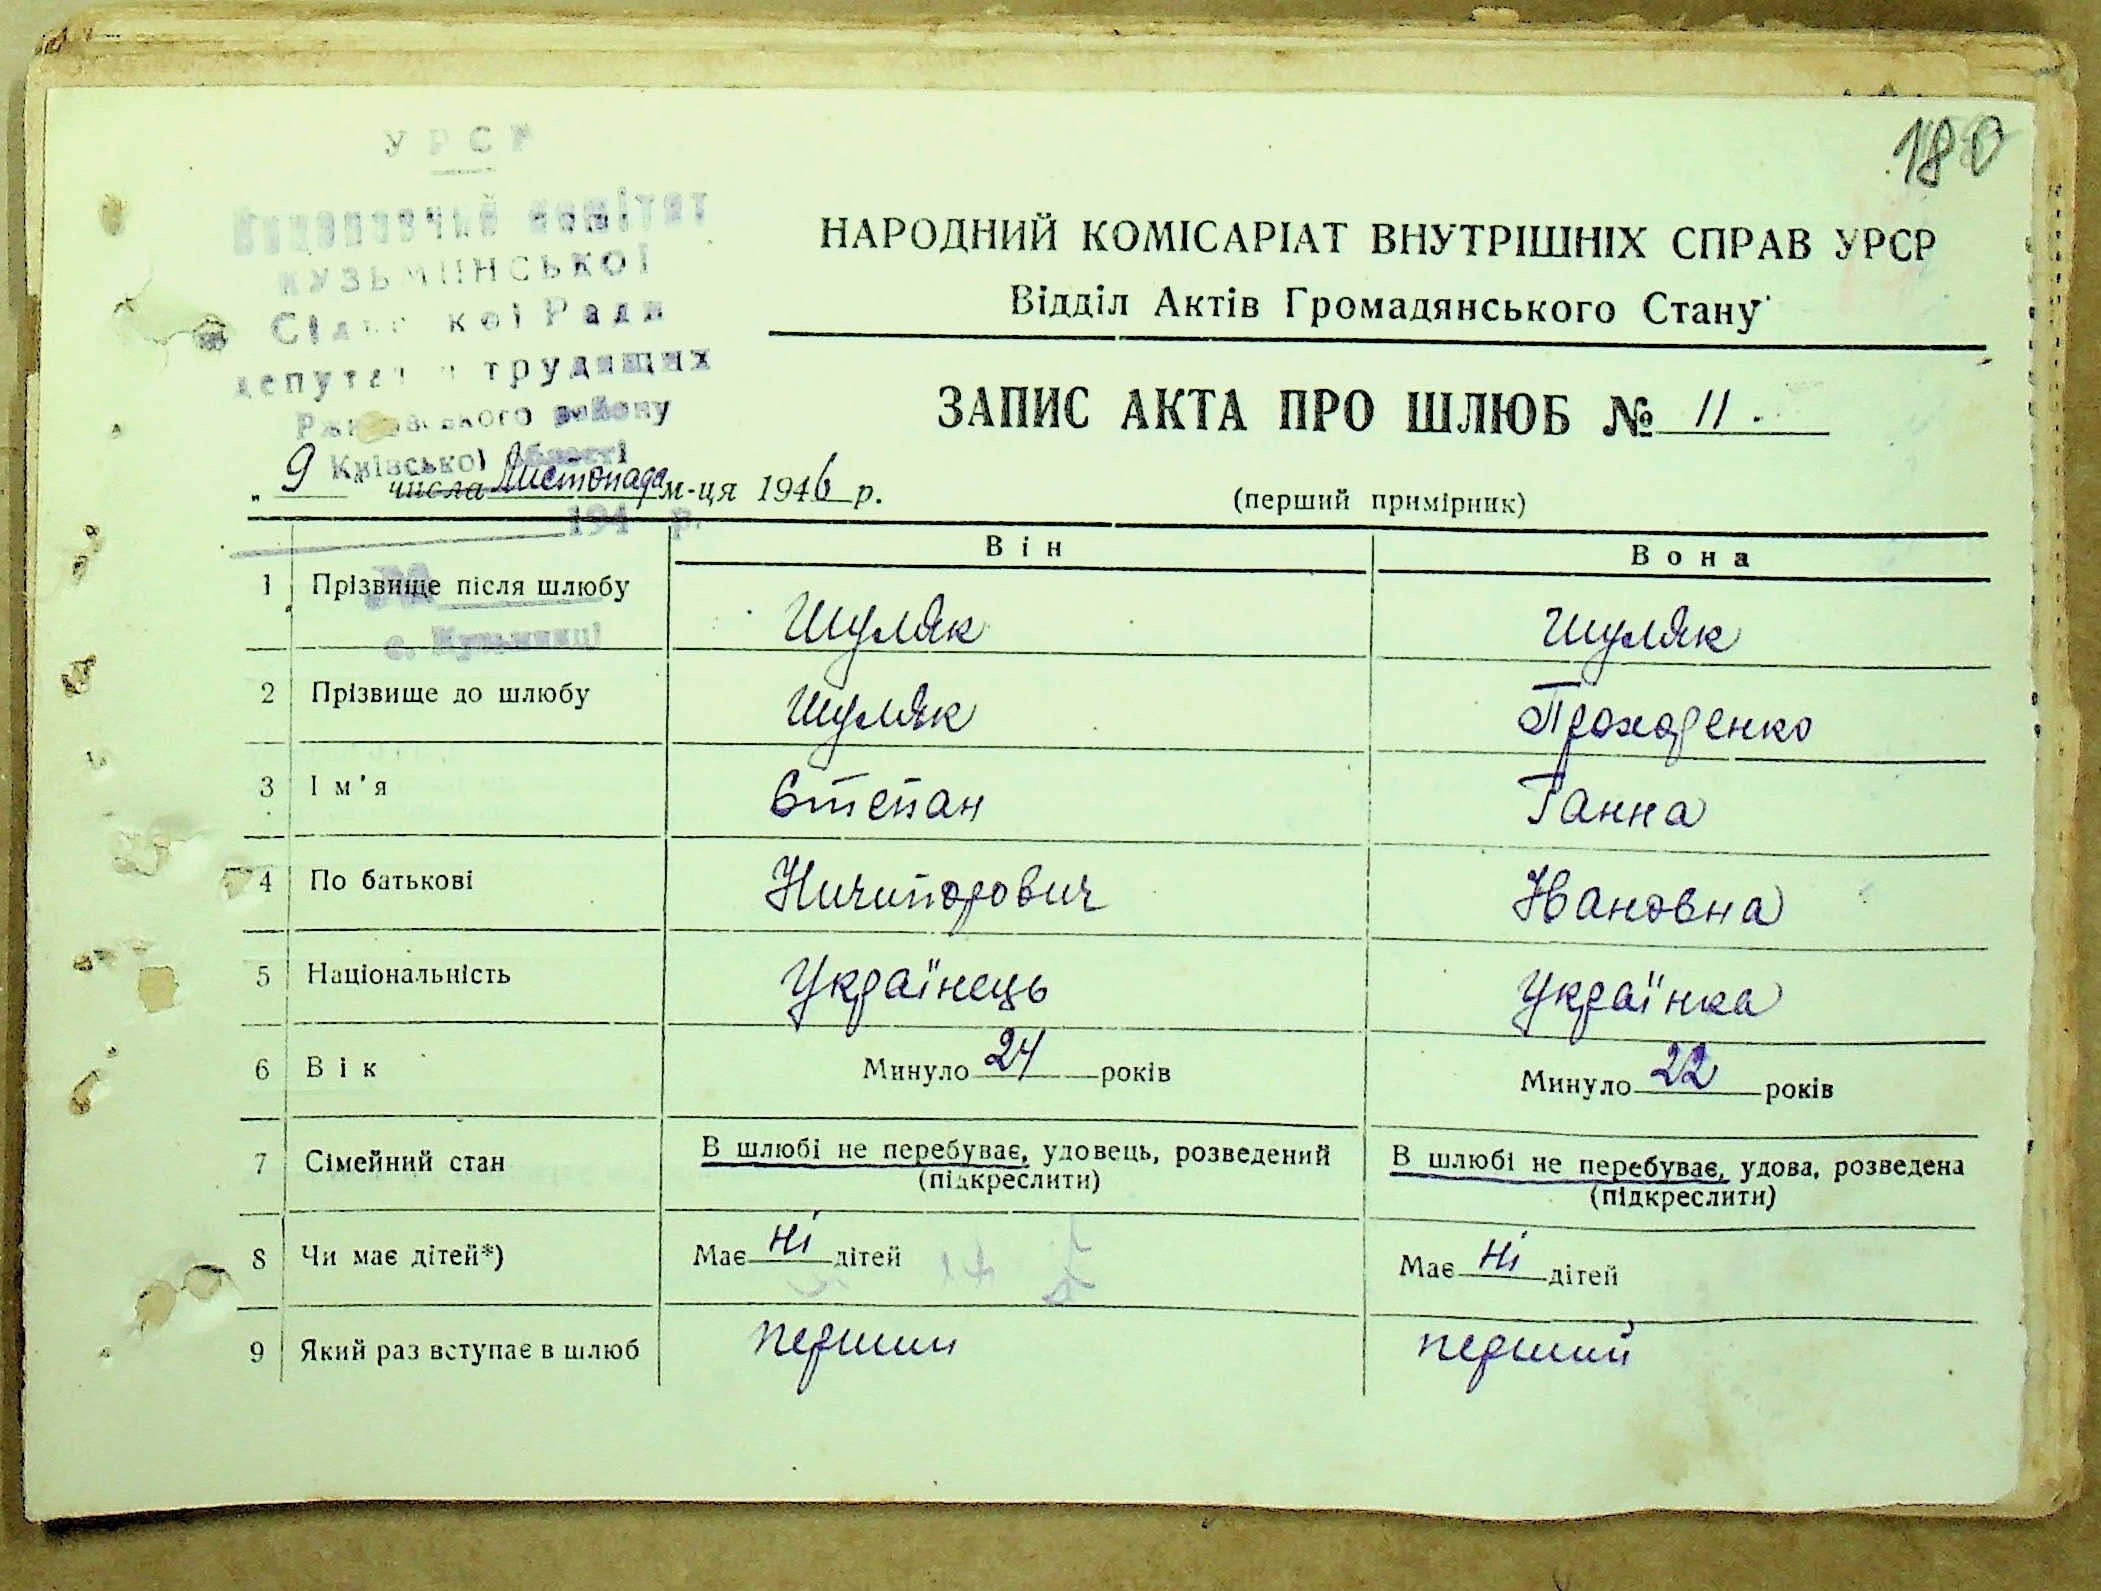 180
УРСР
Виконавчий комітет
КУЗЬМИНСЬКОЇ
Сільської Ради
депутатів трудящих
Ржищівського району
Київської області
194 р.
№
с. Кузьминці
НАРОДНИЙ КОМІСАРІАТ ВНУТРІШНІХ СПРАВ УРСР
Відділ Актів Громадянського Стану
ЗАПИС АКТА ПРО ШЛЮБ № 11.
„9“ числа Листопада м-ця 1946 р.
(перший примірник)
Він Вона
1 Прізвище після шлюбу Шуляк Шуляк
2 Прізвище до шлюбу Шуляк Проходенко
3 Ім'я Степан Ганна
4 По батькові Ничипорович Ивановна
5 Національність Українець Українка
6 Вік Минуло 24 років Минуло 22 років
7 Сімейний стан В шлюбі не перебуває, удовець, розведений В шлюбі не перебуває, удова, розведена
(підкреслити) (підкреслити)
8 Чи має дітей*) Має ні дітей Має ні дітей
9 Який раз вступає в шлюб перший перший